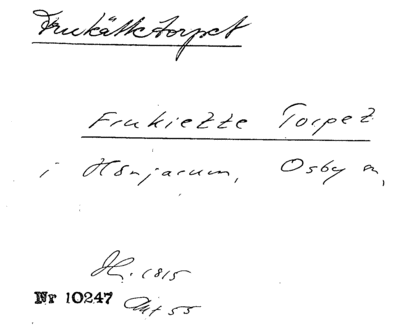 Frukättetorpet
Frukiette Torpet
i Hönjarum, Osby sn,
H. 1815
Nr 10247 Akt 55